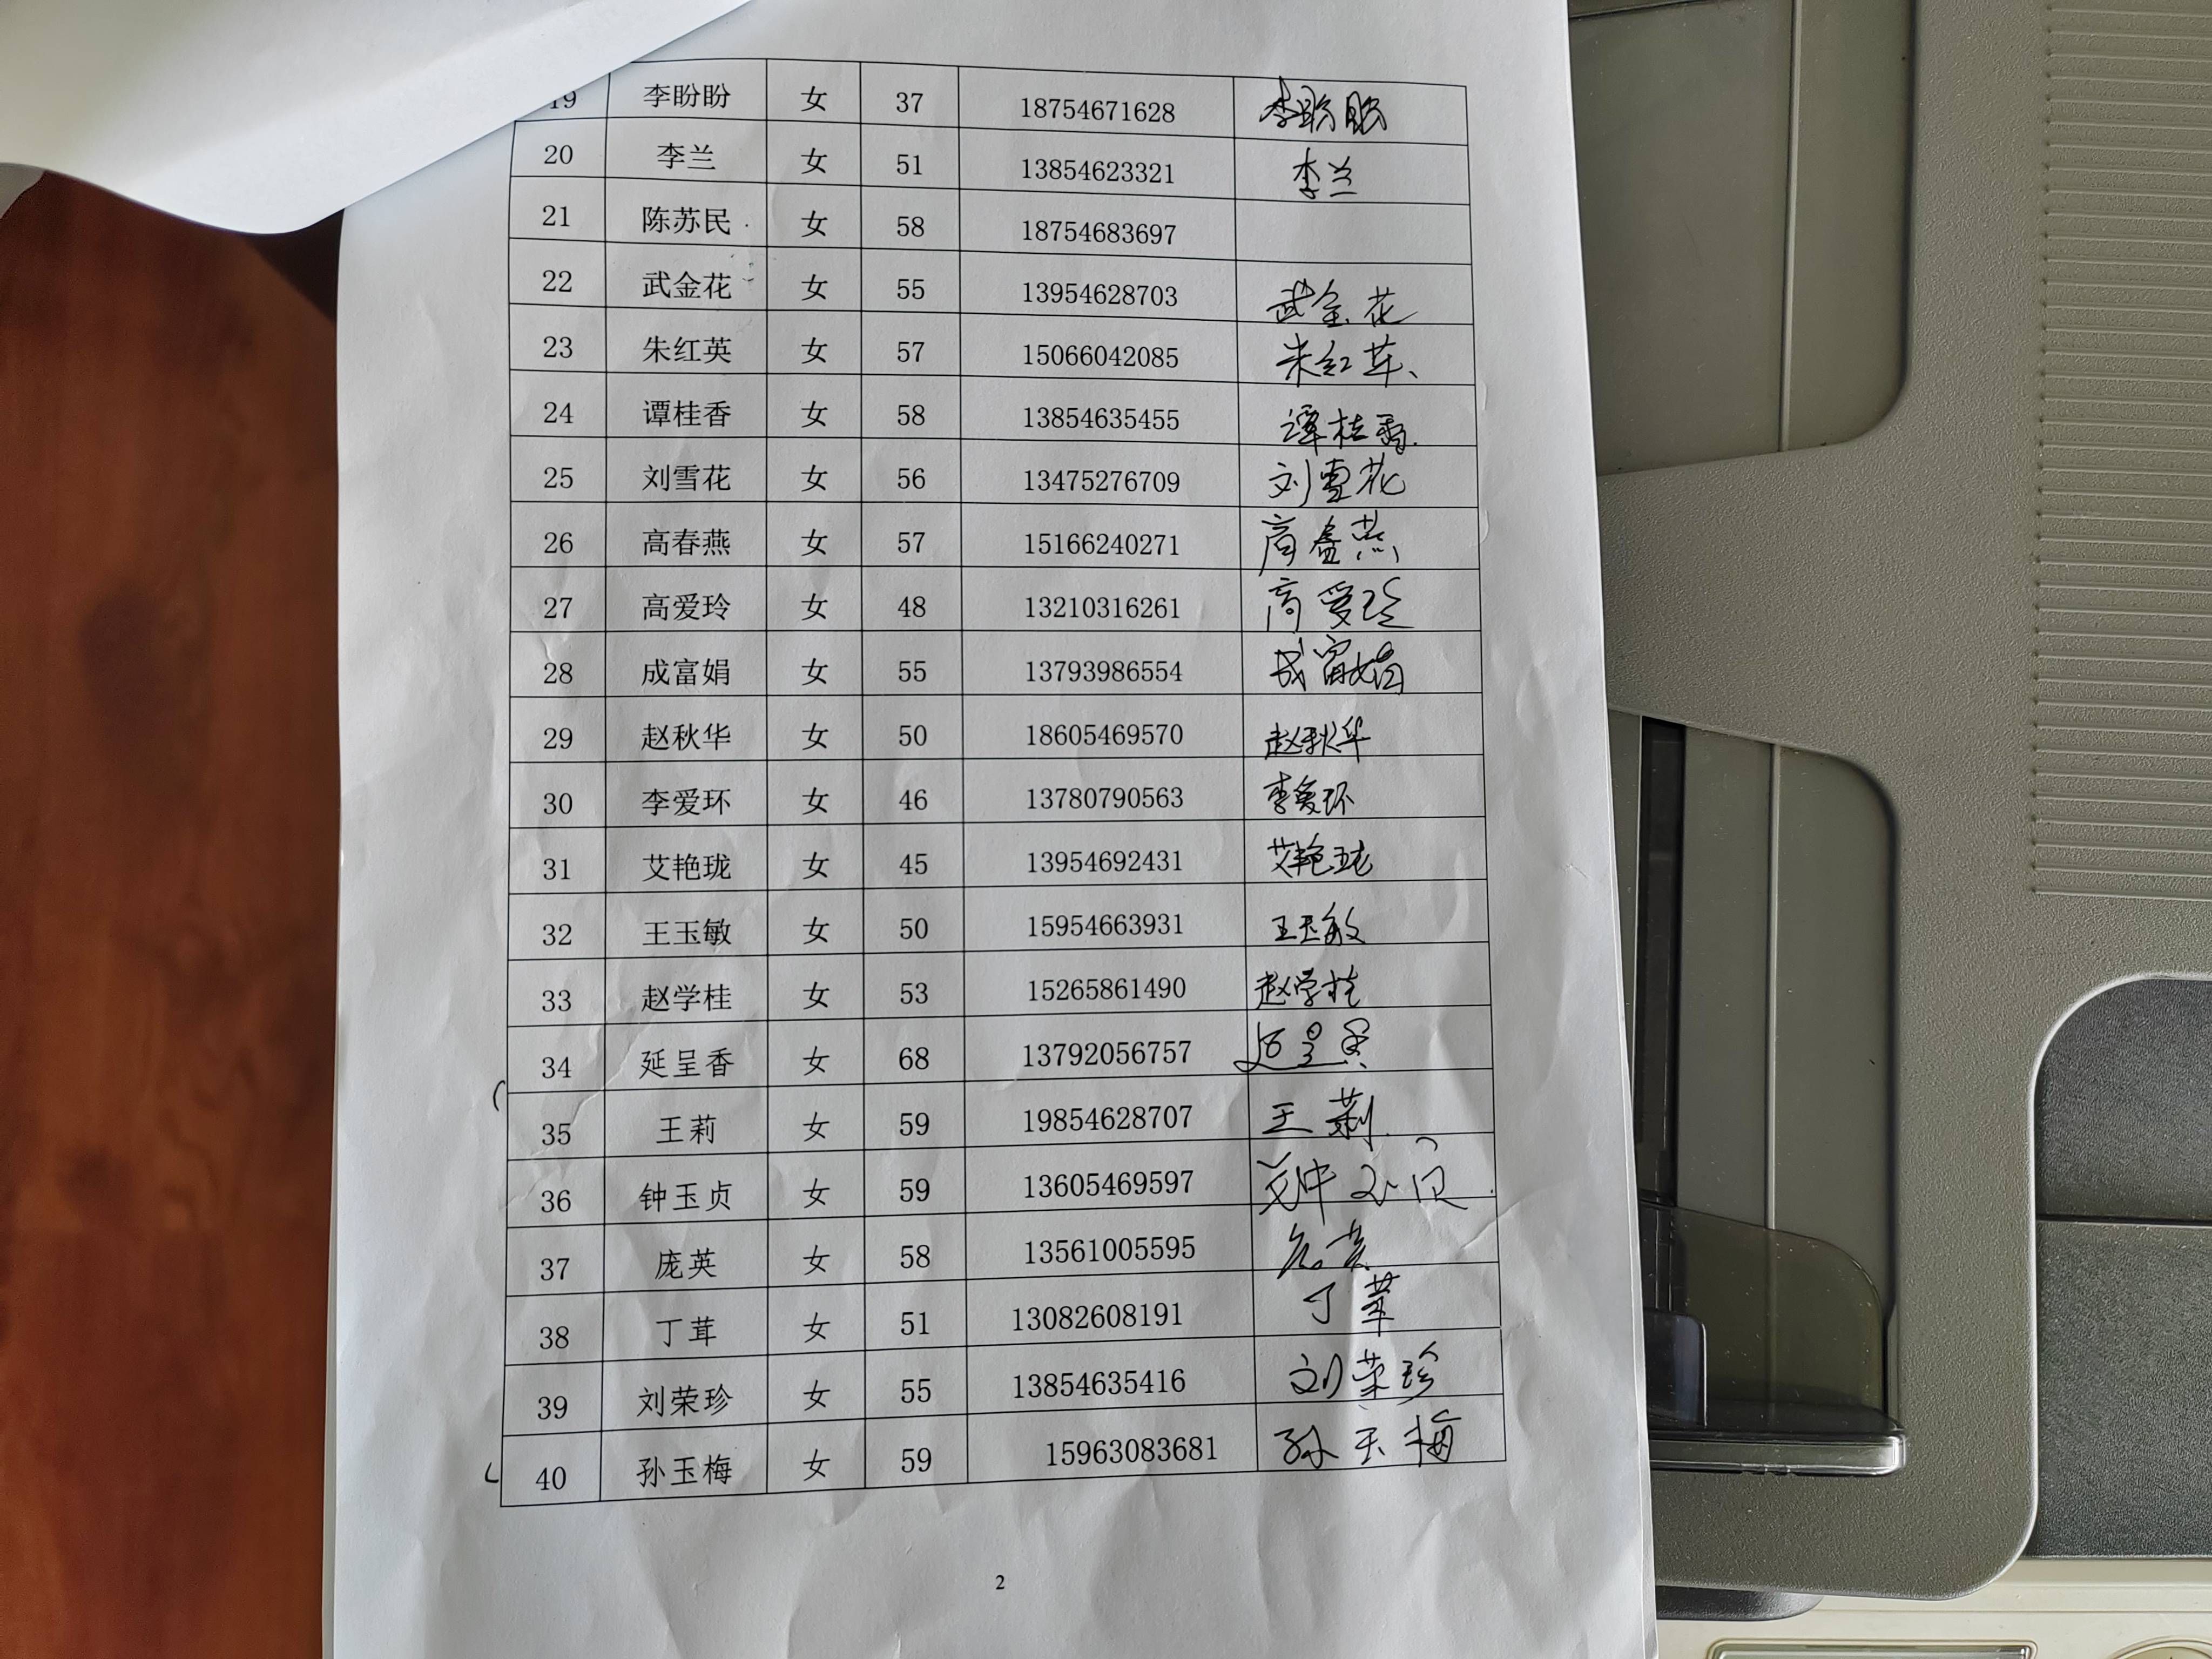 19 李盼盼 女 37 18754671628 李盼盼
20 李兰 女 51 13854623321 李兰
21 陈苏民 女 58 18754683697
22 武金花 女 55 13954628703 武金花
23 朱红英 女 57 15066042085 朱红英
24 谭桂香 女 58 13854635455 谭桂香
25 刘雪花 女 56 13475276709 刘雪花
26 高春燕 女 57 15166240271 高春燕
27 高爱玲 女 48 13210316261 高爱玲
28 成富娟 女 55 13793986554 成富娟
29 赵秋华 女 50 18605469570 赵秋华
30 李爱环 女 46 13780790563 李爱环
31 艾艳珑 女 45 13954692431 艾艳珑
32 王玉敏 女 50 15954663931 王玉敏
33 赵学桂 女 53 15265861490 赵学桂
34 延呈香 女 68 13792056757 延呈香
35 王莉 女 59 19854628707 王莉
36 钟玉贞 女 59 13605469597
37 庞英 女 58 13561005595
38 丁茸 女 51 13082608191 丁茸
39 刘荣珍 女 55 13854635416 刘荣珍
40 孙玉梅 女 59 15963083681 孙玉梅
2